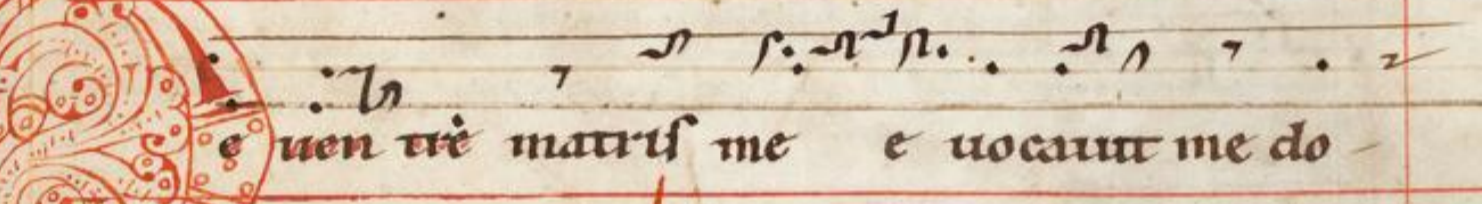 De uen tre matris me e uocauit me do